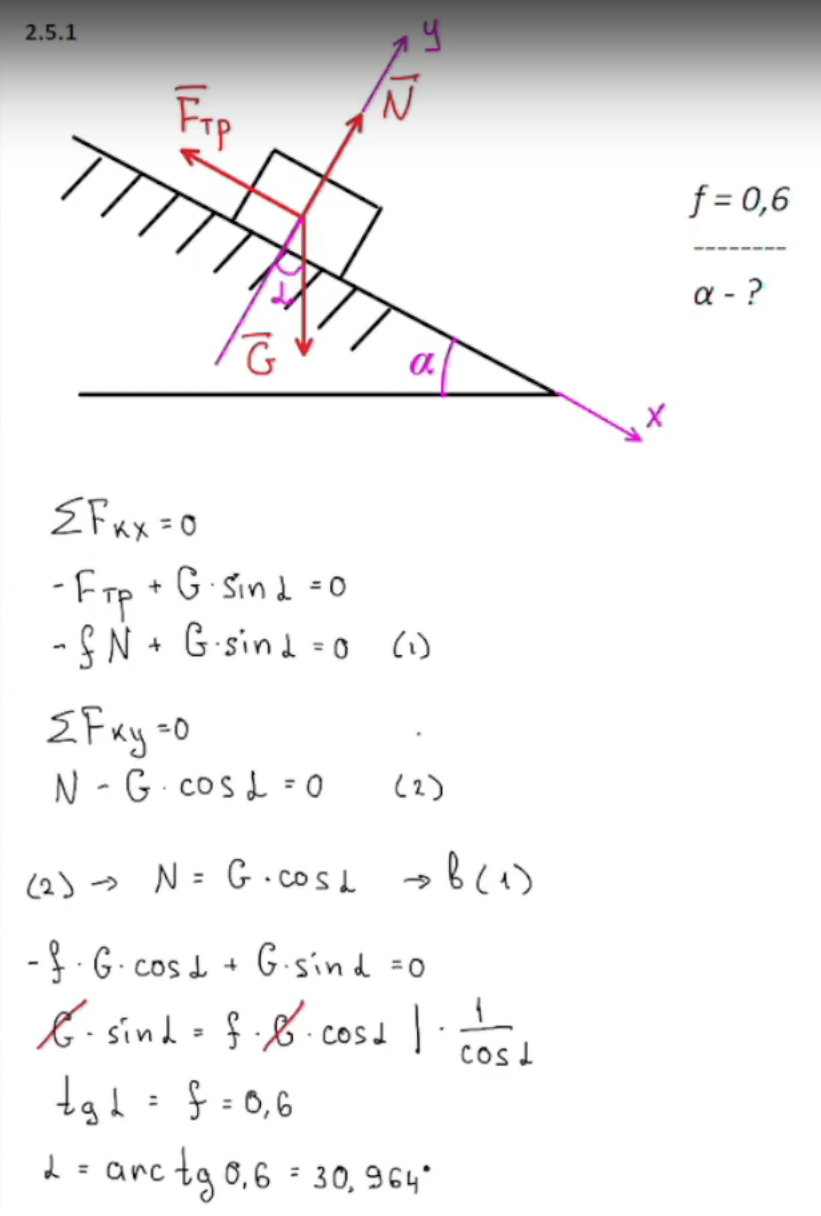 2.5.1
y
N
Fтр
f = 0,6
--------
α - ?
α
G
α
x
ΣFкх = 0
- Fтр + G · sin α = 0
- f N + G · sin α = 0 (1)
ΣFку = 0
N - G · cos α = 0 (2)
(2) → N = G · cos α → в (1)
- f · G · cos α + G · sin α = 0
G · sin α = f · G · cos α | · 1/cos α
tg α = f = 0,6
α = arctg 0,6 = 30,964°